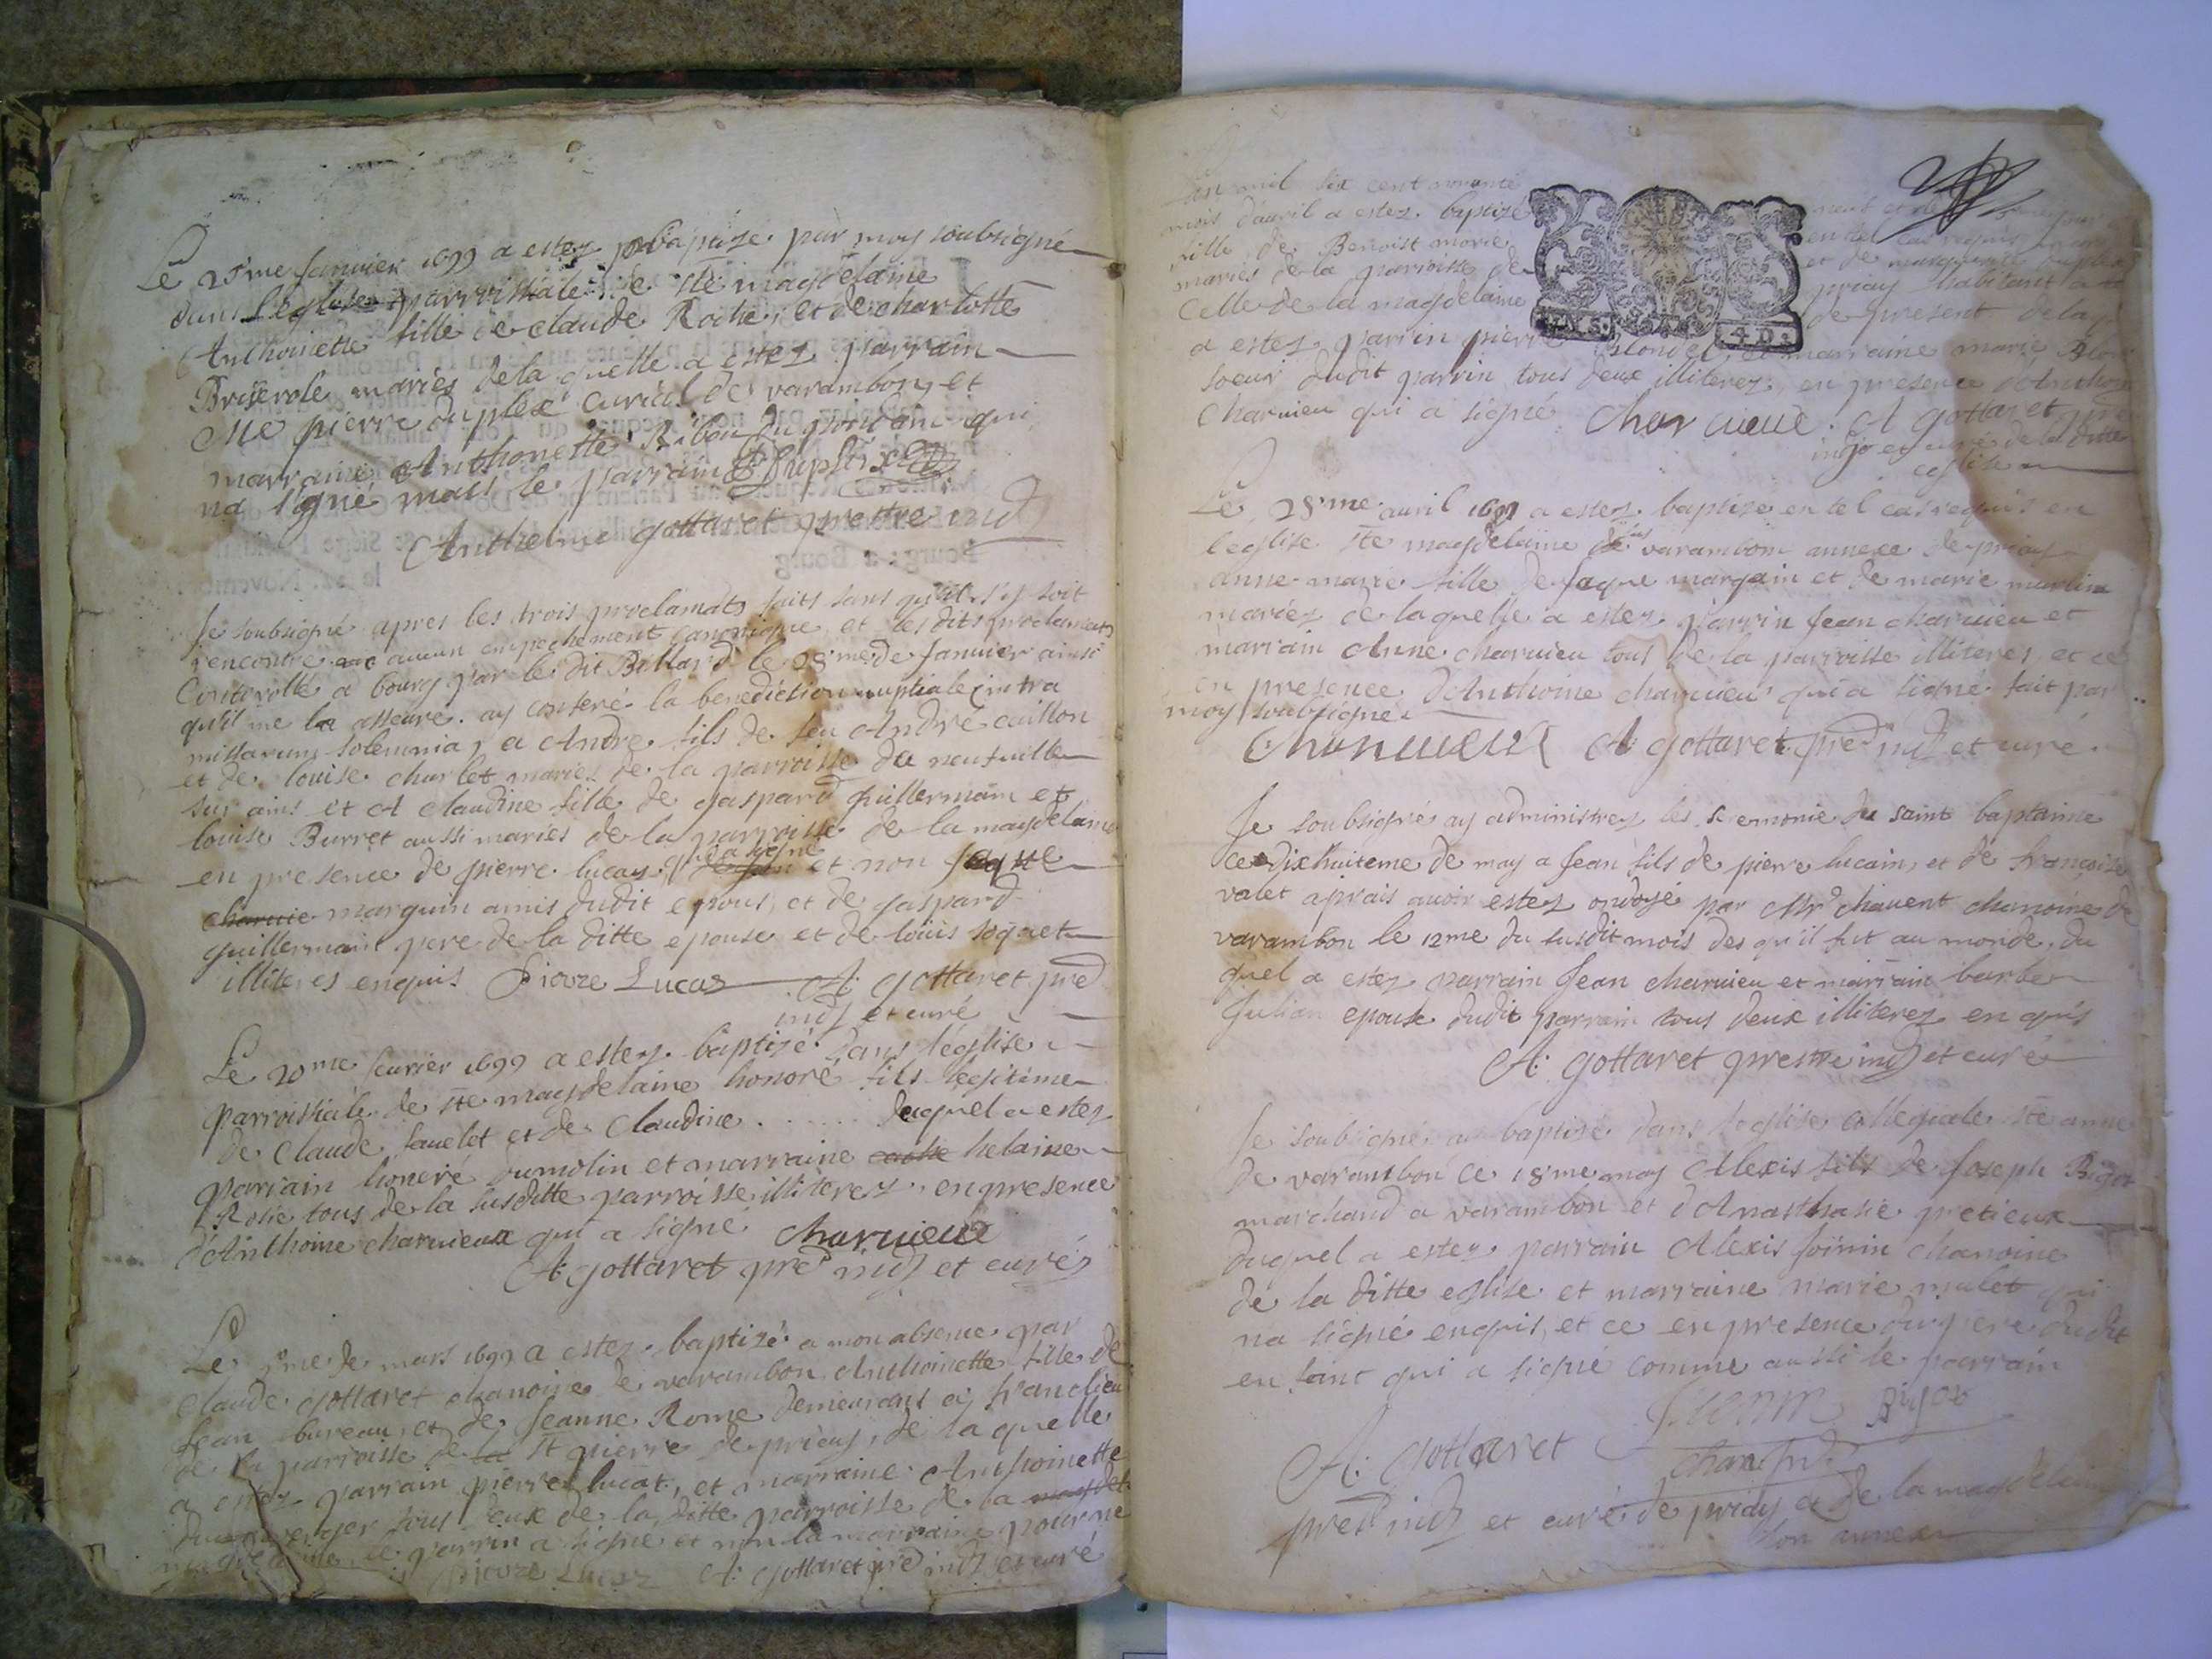 Le 25me Janvier 1699 a estez baptizé par moy soubsigné
dans l'eglise parroissiale de ste magdelaine
Anthoinette fille de claude Roche, et de charlotte
Briserole mariés de la quelle a estez parrain
Me pierre duplex curial de varambon, et
marraine Anthonette Ribou qui
na signé mais le parrain Duplex
Anthelme gottaret prestre indg
Je soubsigné apres les trois proclamats faits sans qu'il s'y soit
rencontré aucun empechement canonique, et les dits proclamats
Controollé a bourg par le dit Billard le 28me de Janvier ainsi
qu'il me la asseuré. ay conferé la benediction nuptiale (intra
missarum solemnia) a André fils de feu André caillon
et de louise charlet mariés de la parroisse de neufville
sur ains et A claudine fille de gaspard guillermain et
louise Burret aussi mariés de la parroisse de la magdelaine
en presence de pierre lucas qui a signé et non Jaque
charvie marguin amis dudit epous, et de gaspard
guillermain pere de la ditte epouse et de loüis soquet
illiteres enquis Pierre Lucas A: gottaret pred
indg et curé
Le 20me fevrier 1699 a estez baptizé dans l'église
parroissiale de ste magdelaine honoré fils legitime
de Claude sauelet et de Claudine ...... duquel a estez
parrain honoré dumolin et marraine helaine
Rosie tous de la susditte parroisse illiterez. en presence
d'Anthoine charuieux qui a signé charuieux
A: gottaret pred indg et curés
Le me de mars 1699 a estez baptizé a mon absence par
claude gottaret chanoine de varambon Anthoinette fille de
Jean bureau, et de Jeanne Rome demeurant a franclieu
de la parroisse de la st pierre de priay, de la quelle
a estez parrain pierre lucat, et marraine Anthoinette
tous deux de la ditte parroisse de la magdel
magdelaine le parrin a signé et non la marraine pour ne
Pierre Lucaz A: gottaret pred indg et curé
Lan mil six cent nonante
mois d'auril a estez baptizé en tel cas requis
fille de Benoist et de marguerite
mariés de la parroisse de priay habitant a
Celle de la magdelaine de present de la
a estez parrin pierre blondel, et marraine marie Blon
soeur dudit parrin tous deux illiterez, en presence d'Anthoi
charuieu qui a signé charuieux. A gottaret pre
indg et curé de la ditte
eglise
Le 28me auril 1699 a estez baptizé en tel cas requis en
leglise ste magdelaine de varambon annexe de priay
anne marie fille de Jaque margain et de marie
mariéz de laquelle a estez parrin Jean charuieu et
marrain Anne charuieu tous de la parroisse illiteres, et ce
en presence d'Anthoine charuieu qui a signé fait par
moy soubsigné
Charuieux A gottaret pred indg et curé
Je soubsigné ay administrez les seremonie du saint baptaime
ce dixhuiteme de may a Jean fils de pierre lucain, et de françoise
valet aprais auoir estez ondoyé par Mr chauent chanoine de
varambon le 12me du susdit mois des qu'il fut au monde, du
quel a estez parrain Jean charuieu et marrain barbe
Julian epouse dudit parrain tous deux illiterez en quis
A: gottaret prestre indg et curé
Je soubsigné ay baptizé dans l'eglise collegiale ste anne
de varambon ce 18me may Alexis fils de Joseph Bigot
marchand a varambon et d'Anasthasie pretieux
duquel a estez parrain Alexis Joinin chanoine
de la ditte eglise et marraine marie mulet qui
na signé enquis, et ce en presence du pere dudit
enfant qui a signé comme aussi le parrain
A: gottaret Bigot
pred indg et curé de priay et de la magdelaine
son annexe